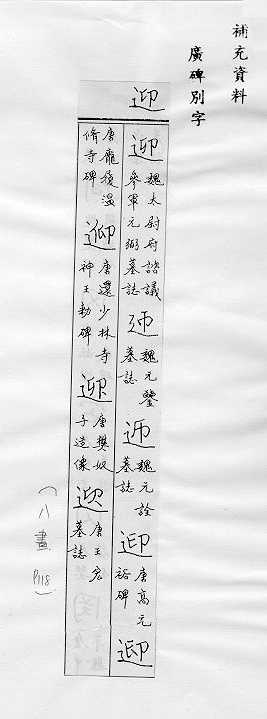 補充資料
廣碑別字
迎
迎
魏太尉府諮議
參軍元弼墓誌
魏元鑒
墓誌
魏元詮
墓誌
迎
唐高元
裕碑
唐龐復溫
脩寺碑
唐還少林寺
神王勅碑
唐樊奴
子造像
唐王宏
墓誌
(八畫 P118)